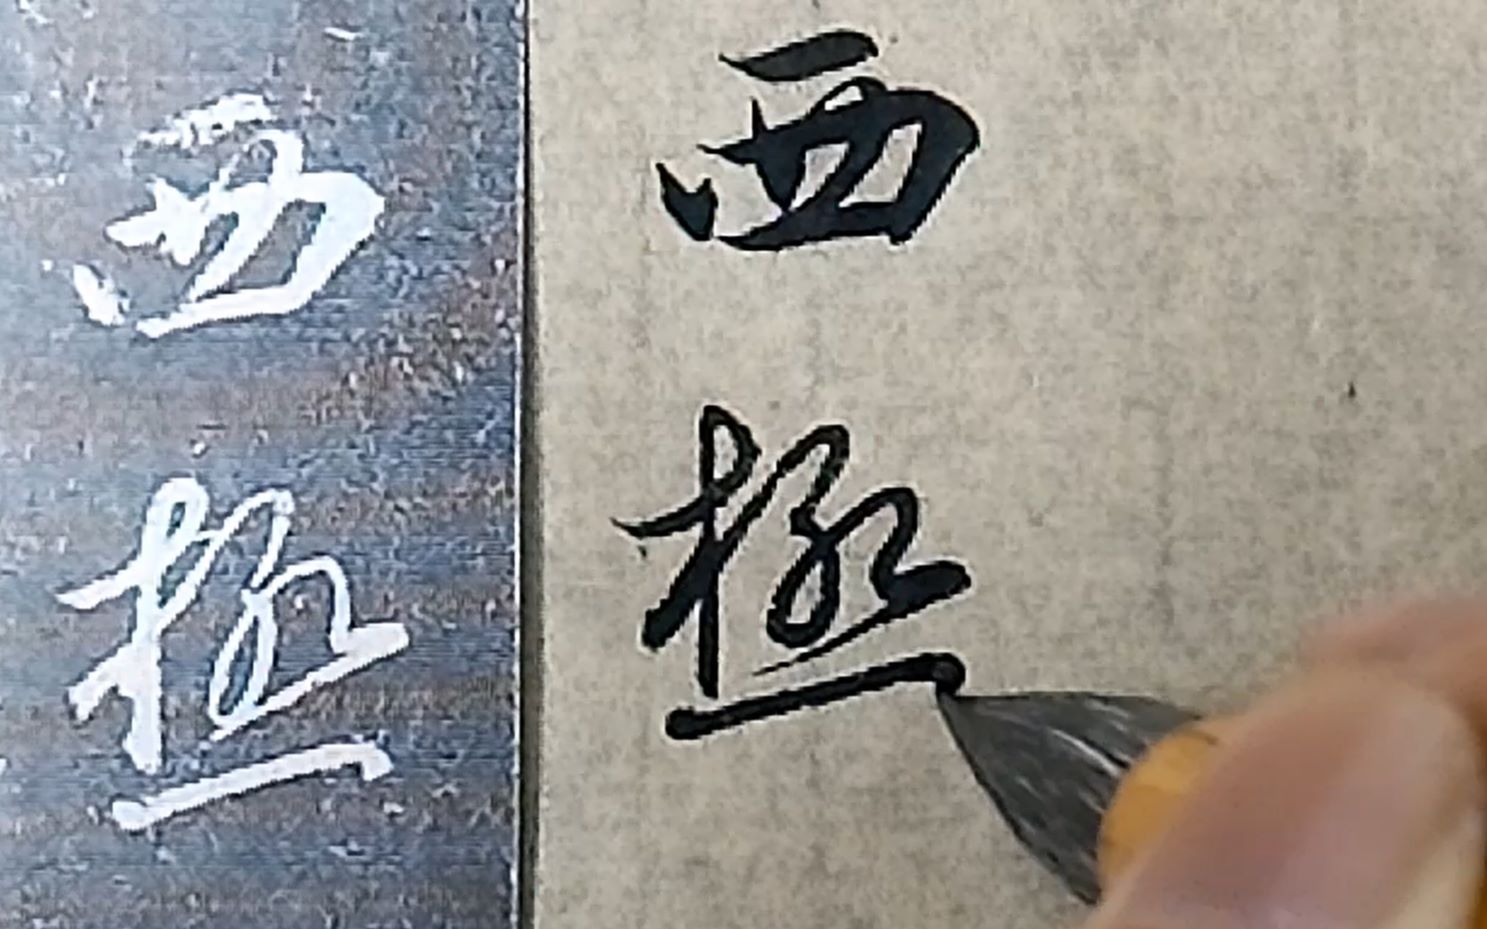 西極
西極